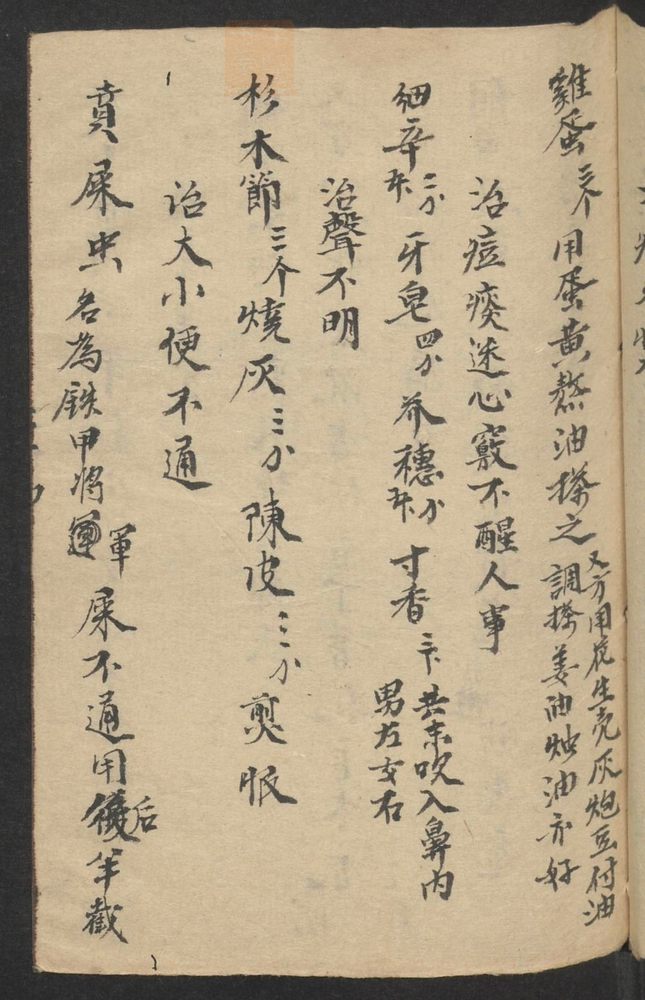 雞蛋三个用蛋黄熬油搽之
又方用花生壳灰炮豆付油
調搽姜油燭油亦好
治痘瘓迷心竅不醒人事
细辛二分牙皂四分芥穗分寸香三下
共末吹入鼻内
男左女右
治聲不明
杉木節三个燒灰三分陳皮三分煎服
治大小便不通
賁屎虫名為鉄甲将軍屎不通用後后半截